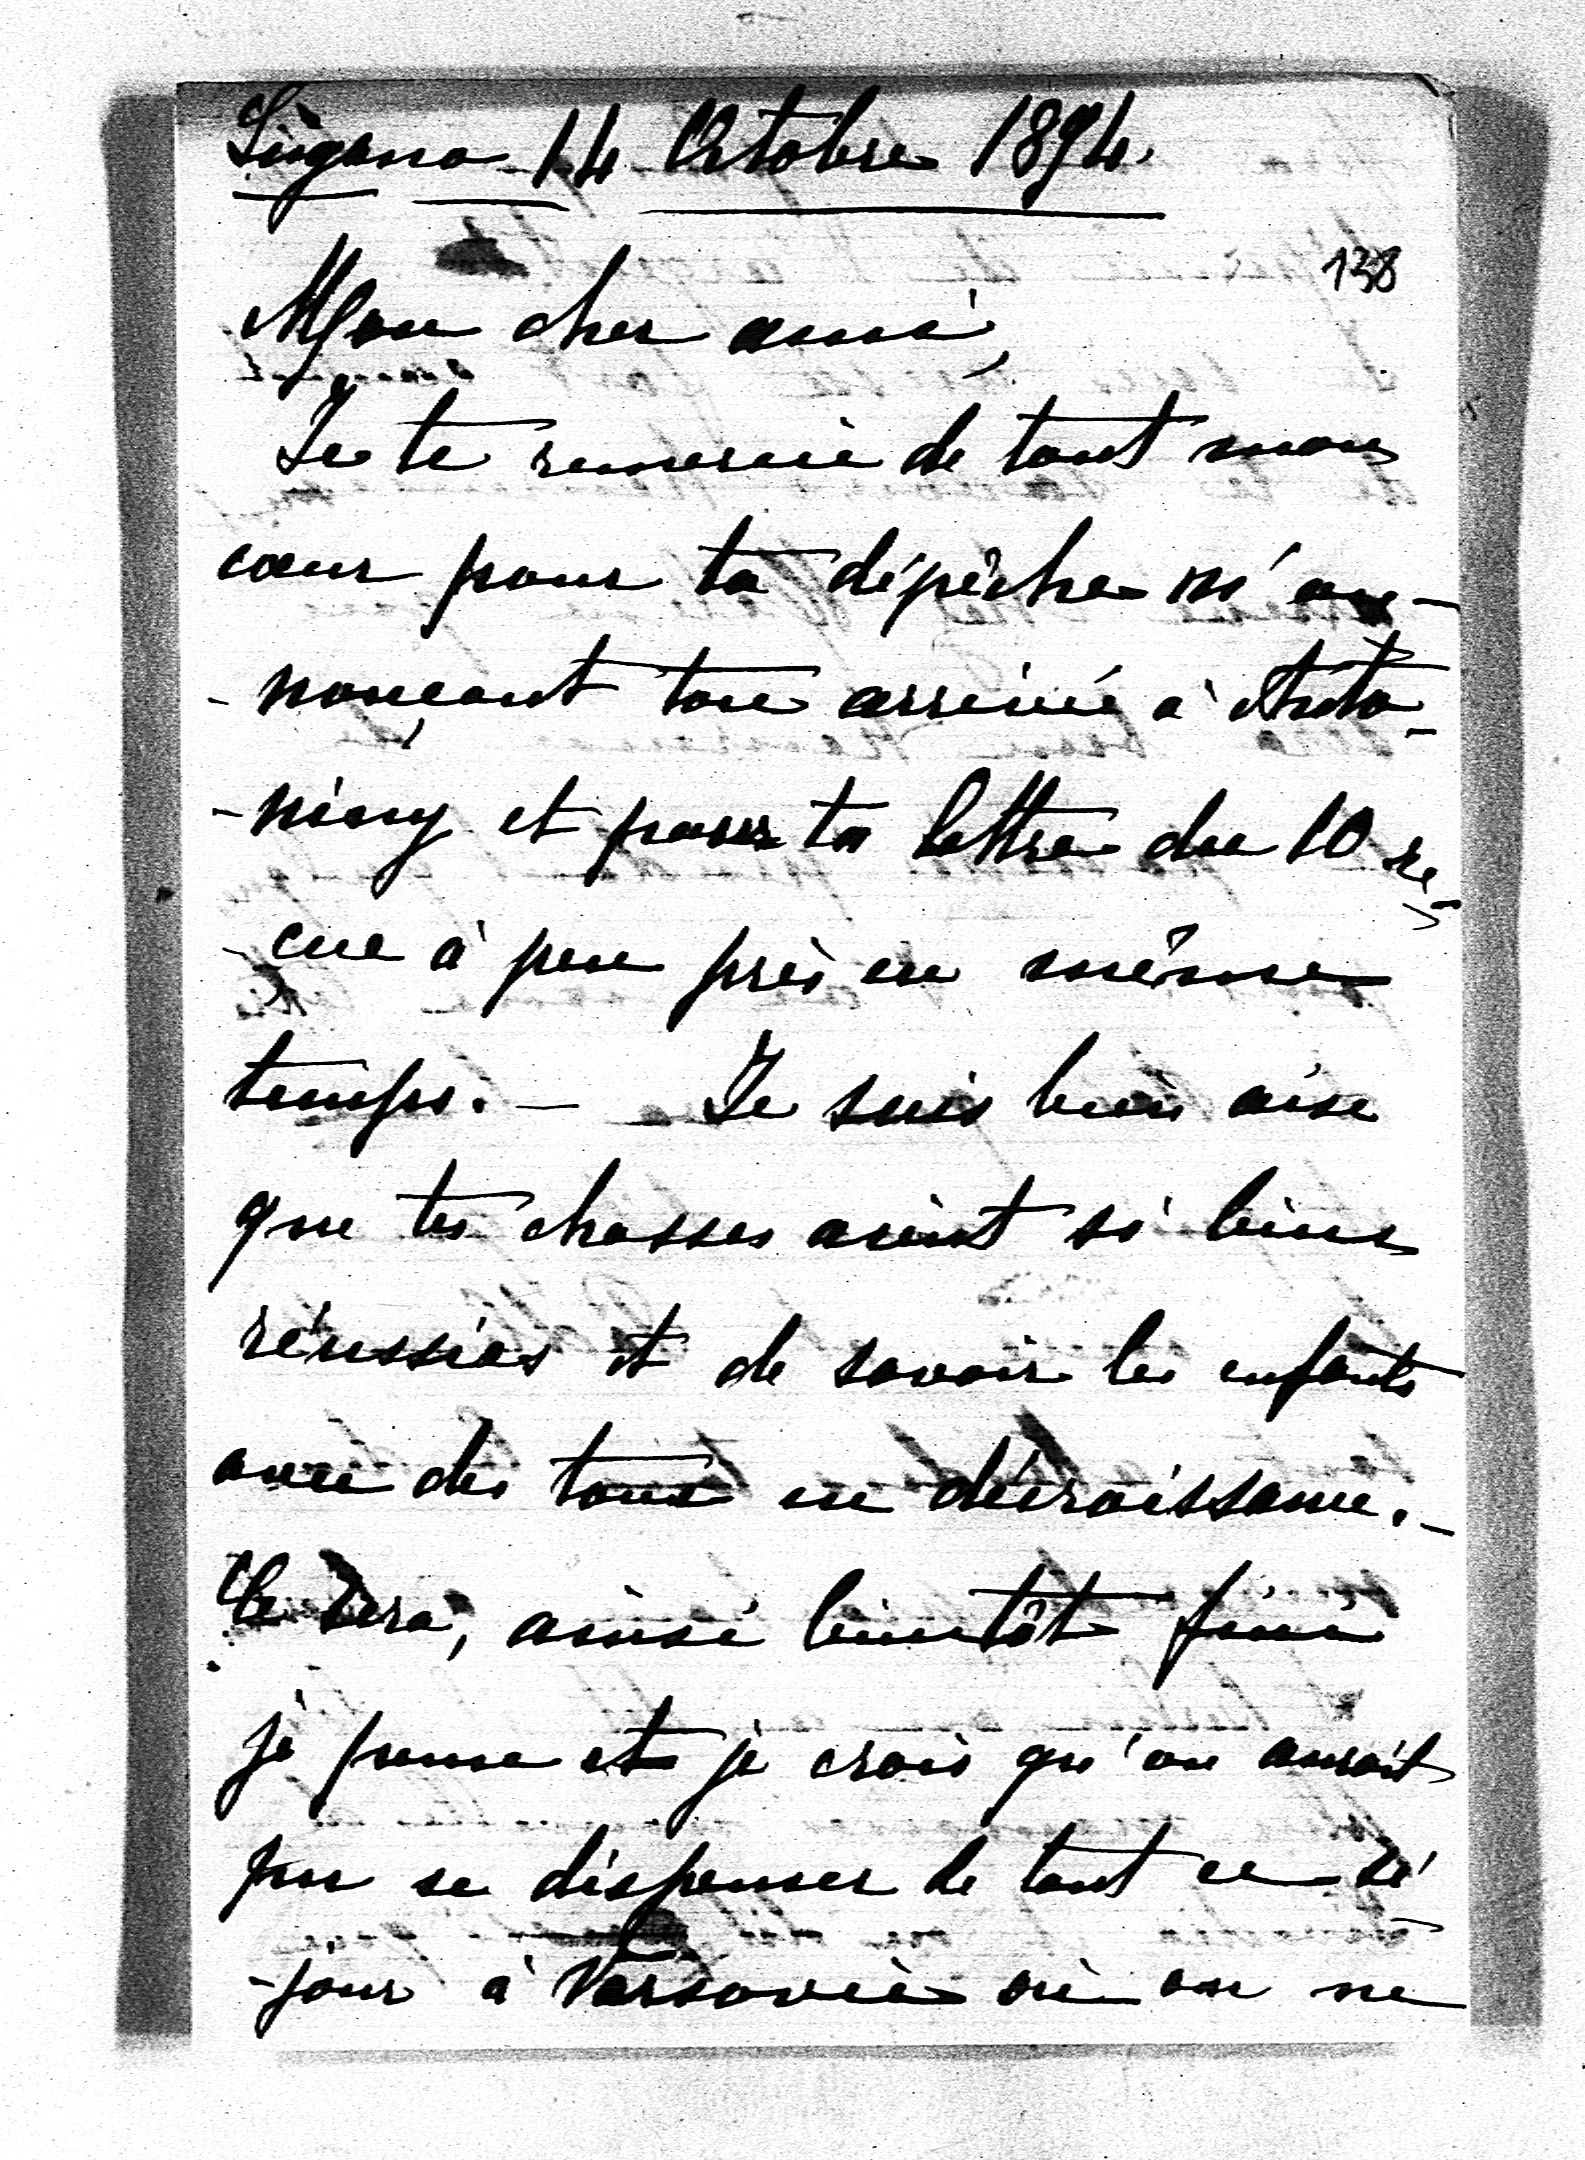 Lugano 14 Octobre 1894.
138
Mon cher ami,
Je te remercie de tout mon
cœur pour ta dépêche m'an-
-nonçant ton arrivée à Anto-
-niny et pour ta lettre du 10 re-
-çue à peu près en même
temps. — Je suis bien aise
que tes chasses aient si bien
réussies et de savoir les enfants
avec des toux en décroissance. -
Ce sera, ainsi bientôt fini
je pense et je crois qu'on aurait
pu se dispenser de tout ce sé-
-jour à Varsovie où on ne